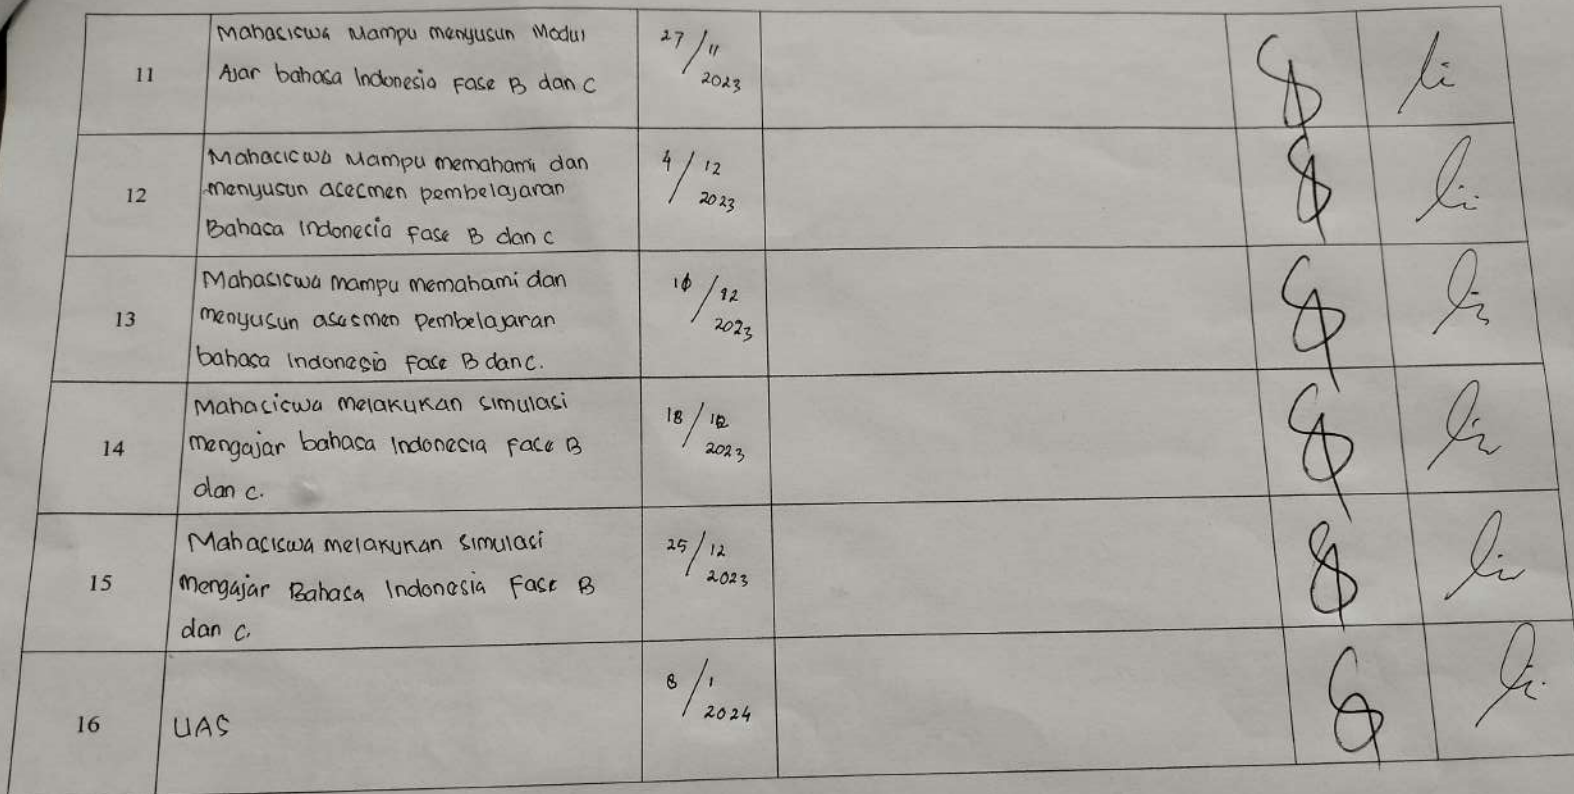 11
Mahasiswa Mampu menyusun Modul
Ajar bahasa Indonesia Fase B dan C
27/11
2023
12
Mahasiswa Mampu memahami dan
menyusun acecmen pembelajaran
Bahaca Indonecia Fase B dan C
4/12
2023
13
Mahasiswa mampu memahami dan
menyusun asesmen pembelajaran
bahasa Indonesia Fase B dan C.
/12
2023
14
Mahaciswa melakukan simulasi
mengajar bahasa Indonesia Face B
dan C.
18/12
2023
15
Mahaciswa melakukan simulasi
mengajar Bahasa Indonesia Fase B
dan C.
25/12
2023
16
UAS
8/1
2024